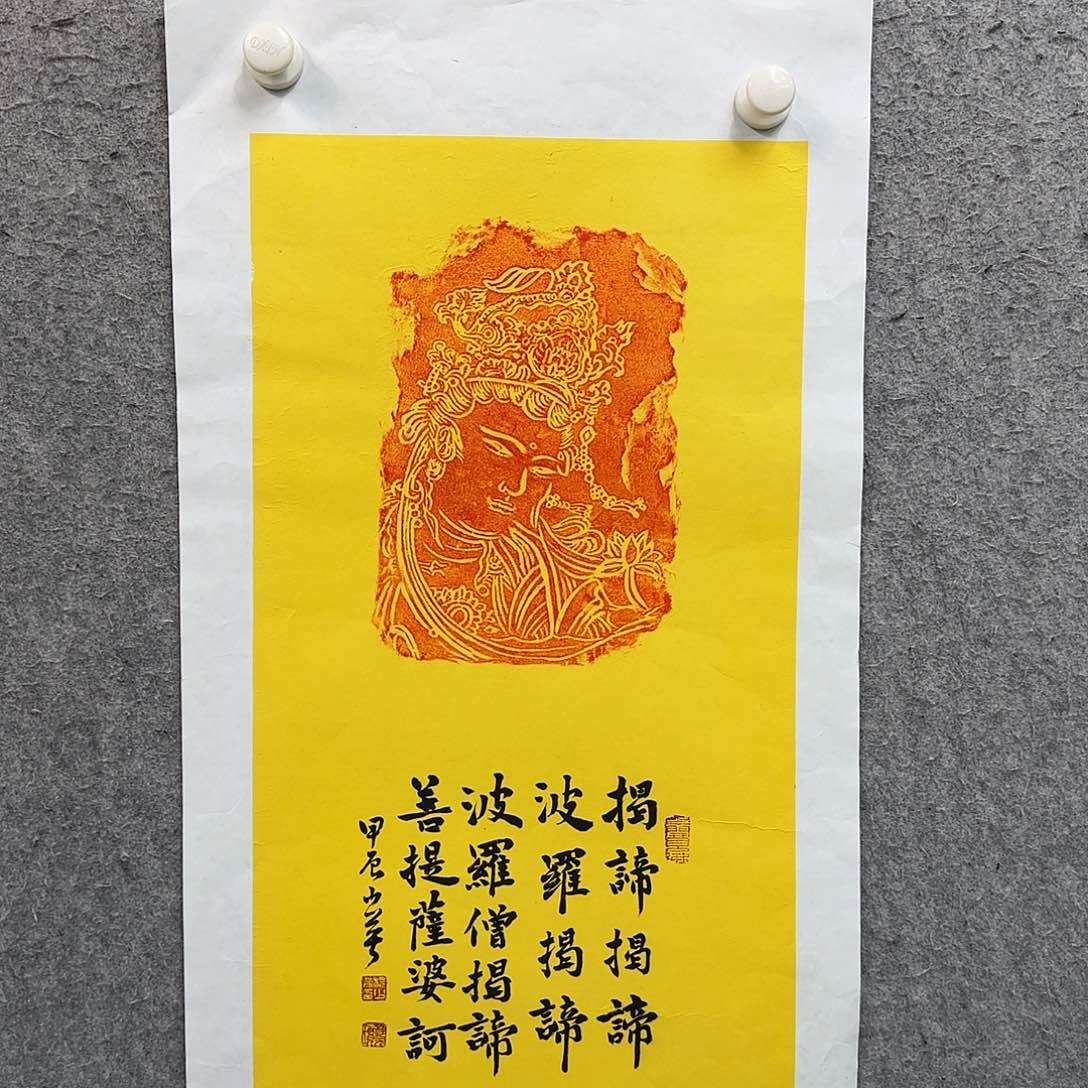 揭諦揭諦
波羅揭諦
波羅僧揭諦
善提薩婆訶
甲辰